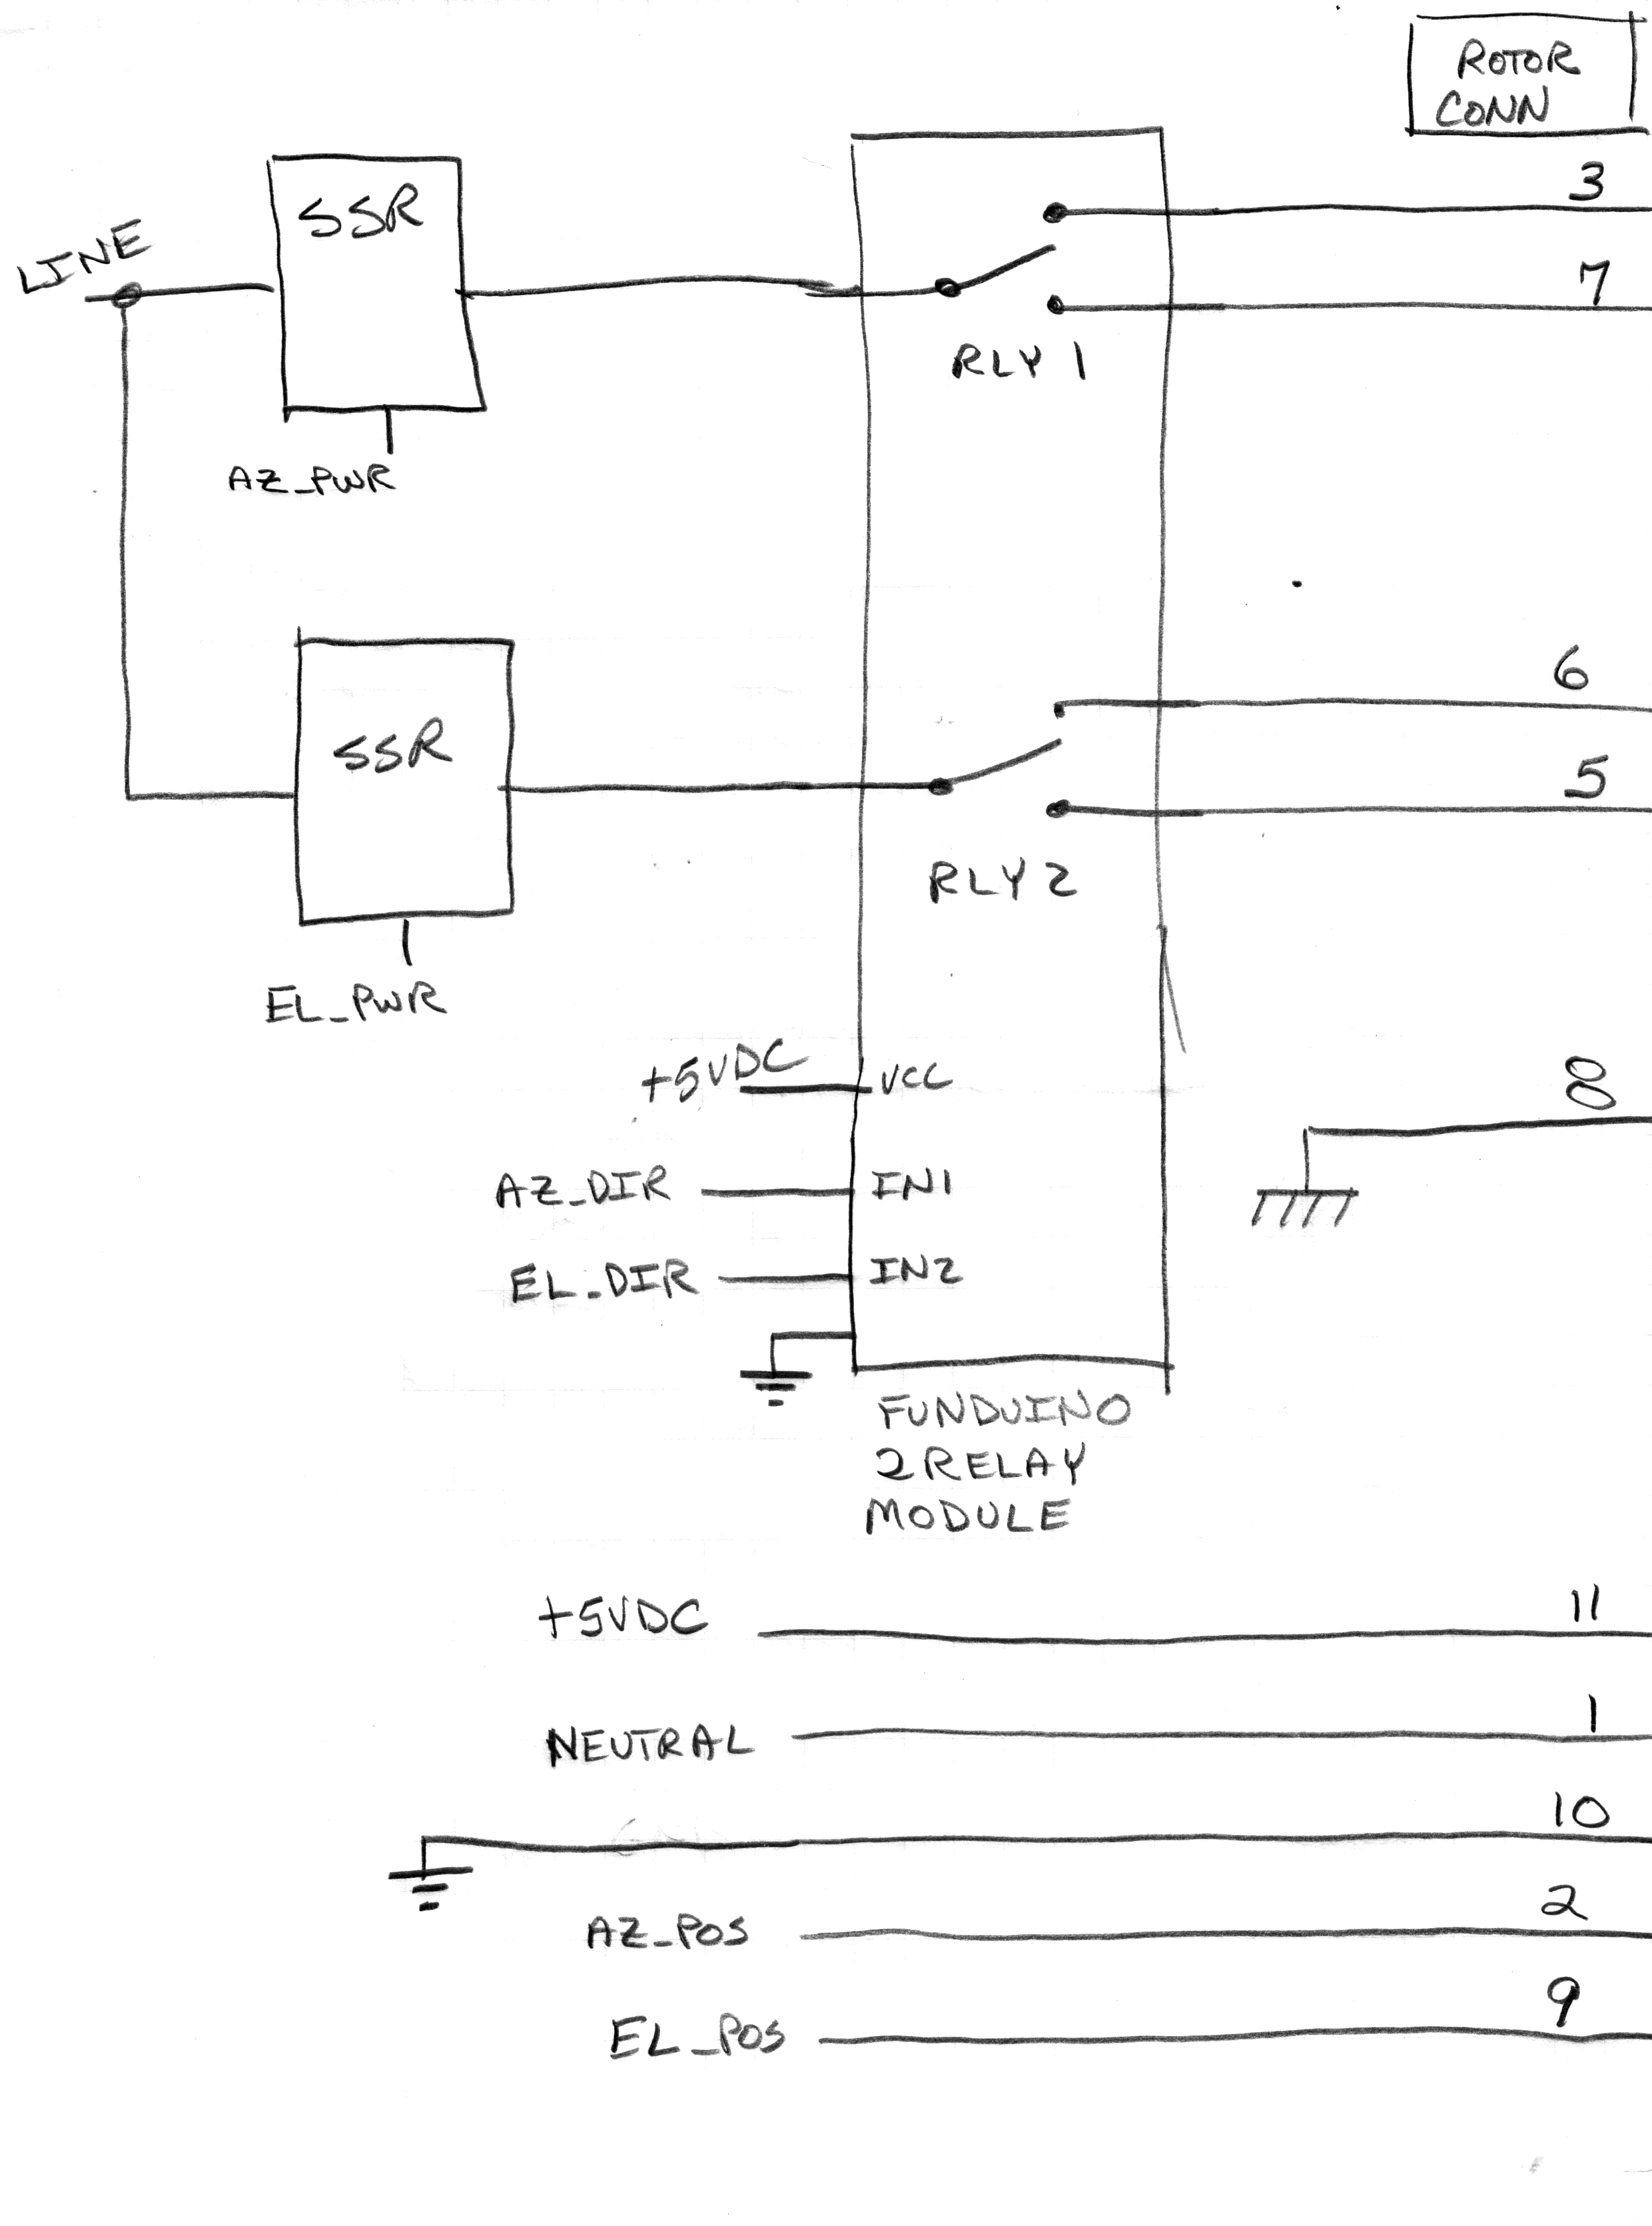 ROTOR
CONN
3
SSR
LINE
7
RLY 1
AZ_PWR
6
SSR
5
RLY 2
EL_PWR
+5VDC
VCC
8
AZ_DIR
IN1
EL_DIR
IN2
FUNDUINO
2 RELAY
MODULE
+5VDC
11
NEUTRAL
1
10
AZ_POS
2
EL_POS
9